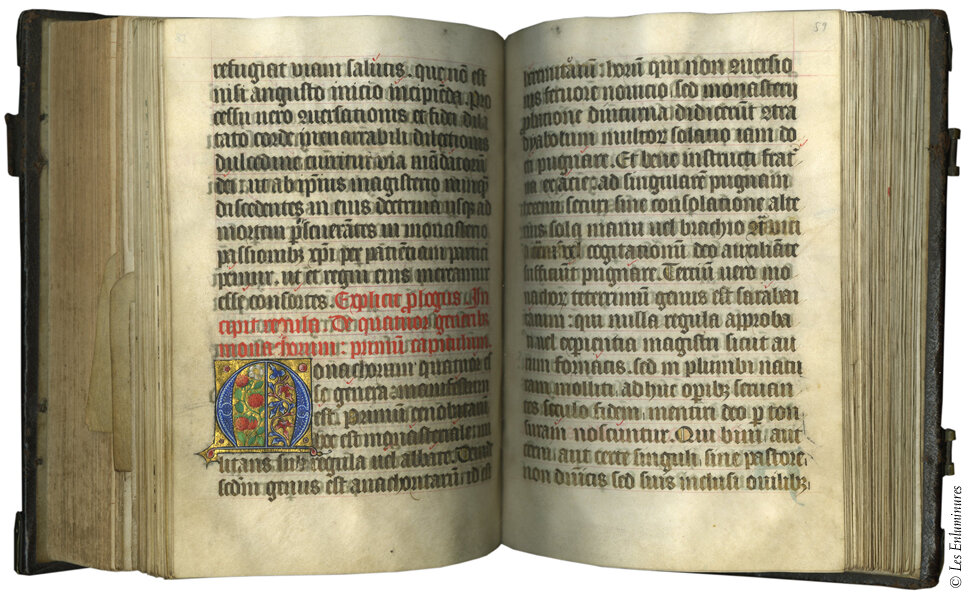 refugiat viam salutis. que nō est
nisi angusto inicio incipiēda. Pro
cessu vero ɔuersationis et fidei dila
tato corde inenarrabili dilectionis
dulcedine curritur via mādatorū
dei: ut ab ipsius magisterio nunqᷓ
discedentes in eius doctrina usqꝫ ad
mortem ꝑseuerātes in monasterio
passionibꝫ xpi per patienciam partici
pemur. ut et regni eius mereamur
esse consortes. Explicit ꝓlogus. In
cipit regula. De quatuor generibꝫ
monachorum: primū capitulum.
Monachorum quatuor e
sse genera manifestum
est. Primum cenobitarū
hoc est monasteriale: mi
litans sub regula uel abbate. Deinde
secūdm genus est anachoritarū: id est
59
heremitarum: horū qui non ɔuersio
nis feruore nouicio. sed monasterij
ꝓbatione diuturna didicerūt ɔtra
dyabolum multor solatio iam do
cti pugnare. Et bene instructi frat
na ex acie: ad singularē pugnam
heremi securi sine consolatione alte
rius. sola manu uel brachio ɔtra vici
a carnis uel cogitationū deo auxiliāte
sufficiūt pugnare. Terciū vero mo
nachor teterrimū genus est sarabai
tarum: qui nulla regula approba
ti uel experiencia magistri sicut au
rum fornacis. sed in plumbi natu
ram molliti. adhuc opibꝫ seruan
tes seculo fidem. mentiri deo ꝑ ton
suram noscuntur. Qui bini aut
terni. aut certe singuli sine pastore.
non dnicis sed suis inclusi ouilibꝫ
© Les Enluminures